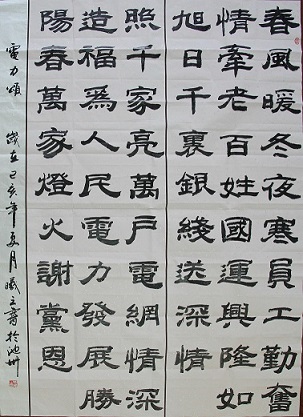 春風暖冬夜寒員工勤奮
情牽老百姓國運興隆如
旭日千裏銀綫送深情
照千家亮萬戶電網情深
造福爲人民電力發展勝
陽春萬家燈火謝黨恩
電力頌 歲在己亥年夏月 書於池州